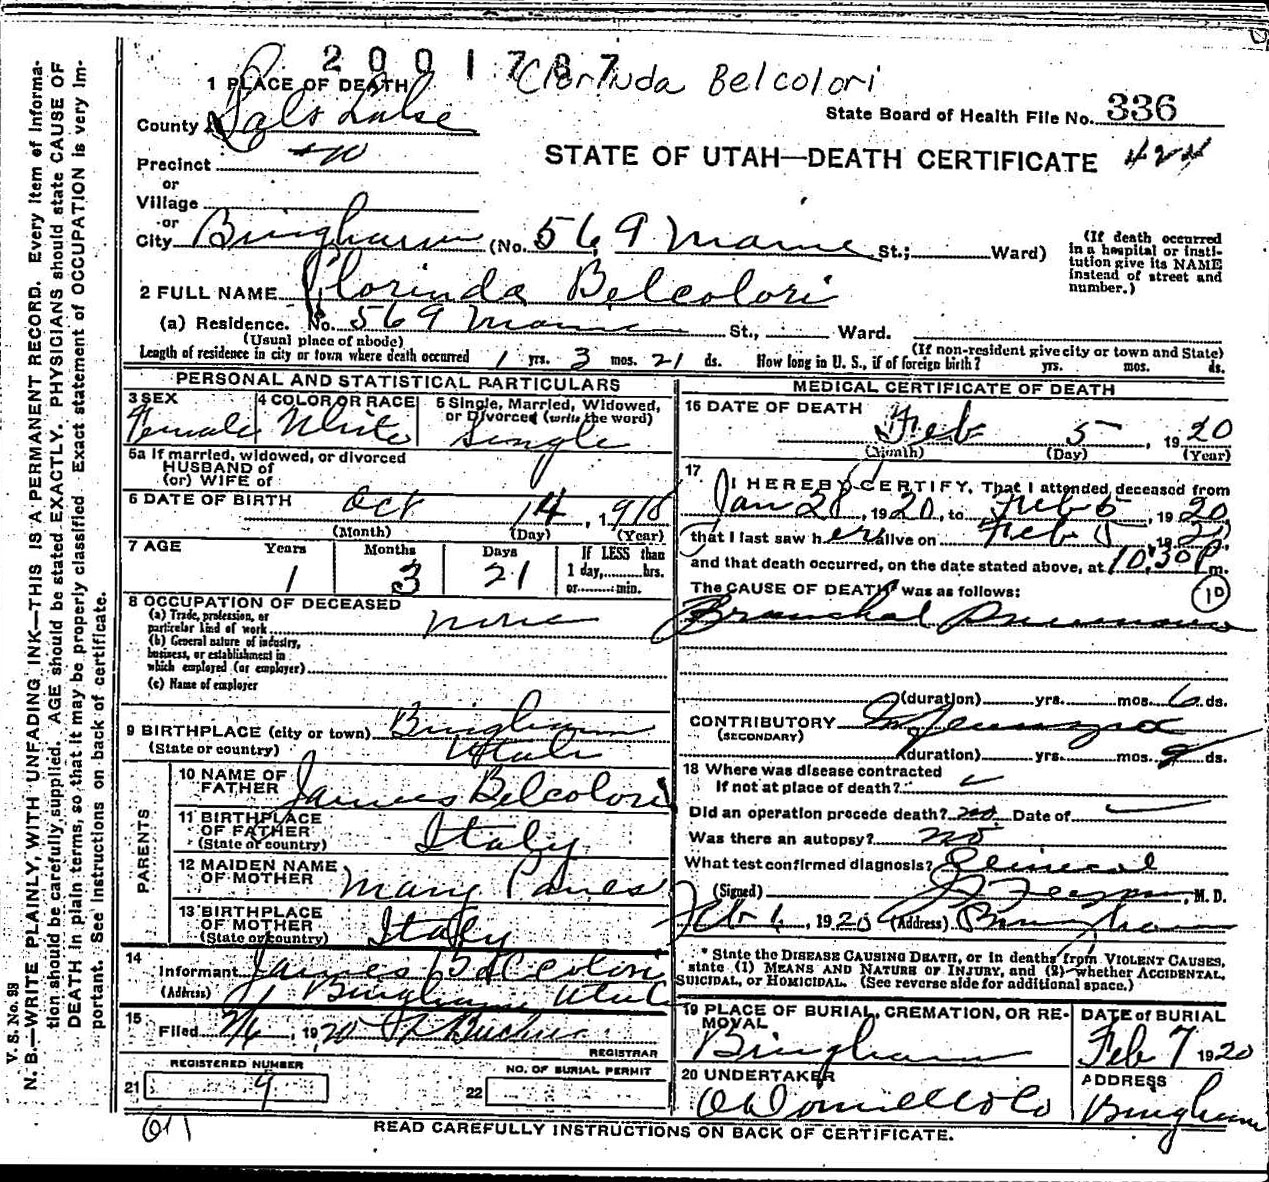 2001787
Clorinda Belcolori
1 PLACE OF DEATH
County Salt Lake
State Board of Health File No. 336
STATE OF UTAH—DEATH CERTIFICATE 424
Precinct
or
Village
or
City Bingham (No. 569 Maine St.; Ward)
(If death occurred
in a hospital or insti-
tution give its NAME
instead of street and
number.)
2 FULL NAME Clorinda Belcolori
(a) Residence. No. 569 Maine St., Ward.
(Usual place of abode)
(If non-resident give city or town and State)
Length of residence in city or town where death occurred 1 yrs. 3 mos. 21 ds. How long in U. S., if of foreign birth? yrs. mos. ds.
PERSONAL AND STATISTICAL PARTICULARS
3 SEX
Female
4 COLOR OR RACE
White
5 Single, Married, Widowed,
or Divorced (write the word)
Single
5a If married, widowed, or divorced
HUSBAND of
(or) WIFE of
6 DATE OF BIRTH Oct 14, 1918
(Month) (Day) (Year)
7 AGE Years Months Days If LESS than
1 day, hrs.
or min.
1 3 21
8 OCCUPATION OF DECEASED
(a) Trade, profession, or
particular kind of work none
(b) General nature of industry,
business, or establishment in
which employed (or employer)
(c) Name of employer
9 BIRTHPLACE (city or town) Bingham
(State or country) Utah
PARENTS
10 NAME OF
FATHER James Belcolori
11 BIRTHPLACE
OF FATHER
(State or country) Italy
12 MAIDEN NAME
OF MOTHER Mary
13 BIRTHPLACE
OF MOTHER
(State or country) Italy
14
Informant James Belcolori
(Address) Bingham Utah
15
Filed 2/6, 1920
REGISTRAR
REGISTERED NUMBER
21 9
NO. OF BURIAL PERMIT
22
MEDICAL CERTIFICATE OF DEATH
16 DATE OF DEATH
Feb 5, 1920
(Month) (Day) (Year)
17
I HEREBY CERTIFY, That I attended deceased from
Jan 28, 1920, to Feb 5, 1920
that I last saw her alive on Feb 5, 1920
and that death occurred, on the date stated above, at 10:30 P m.
The CAUSE OF DEATH* was as follows:
10
Bronchial Pneumonia
(duration) yrs. mos. 6 ds.
CONTRIBUTORY Influenza
(SECONDARY)
(duration) yrs. mos. 9 ds.
18 Where was disease contracted
if not at place of death?
Did an operation precede death? no Date of
Was there an autopsy? no
What test confirmed diagnosis? Clinical
(Signed) , M. D.
Feb 6, 1920 (Address) Bingham
* State the DISEASE CAUSING DEATH, or in deaths from VIOLENT CAUSES,
state (1) MEANS AND NATURE OF INJURY, and (2) whether ACCIDENTAL,
SUICIDAL, or HOMICIDAL. (See reverse side for additional space.)
19 PLACE OF BURIAL, CREMATION, OR RE-
MOVAL
Bingham
DATE of BURIAL
Feb 7 1920
20 UNDERTAKER
O'Donnell & Co
ADDRESS
Bingham
READ CAREFULLY INSTRUCTIONS ON BACK OF CERTIFICATE.
V. S. No. 98
N. B.—WRITE PLAINLY, WITH UNFADING INK—THIS IS A PERMANENT RECORD. Every item of informa-
tion should be carefully supplied. AGE should be stated EXACTLY. PHYSICIANS should state CAUSE OF
DEATH in plain terms, so that it may be properly classified. Exact statement of OCCUPATION is very im-
portant. See instructions on back of certificate.